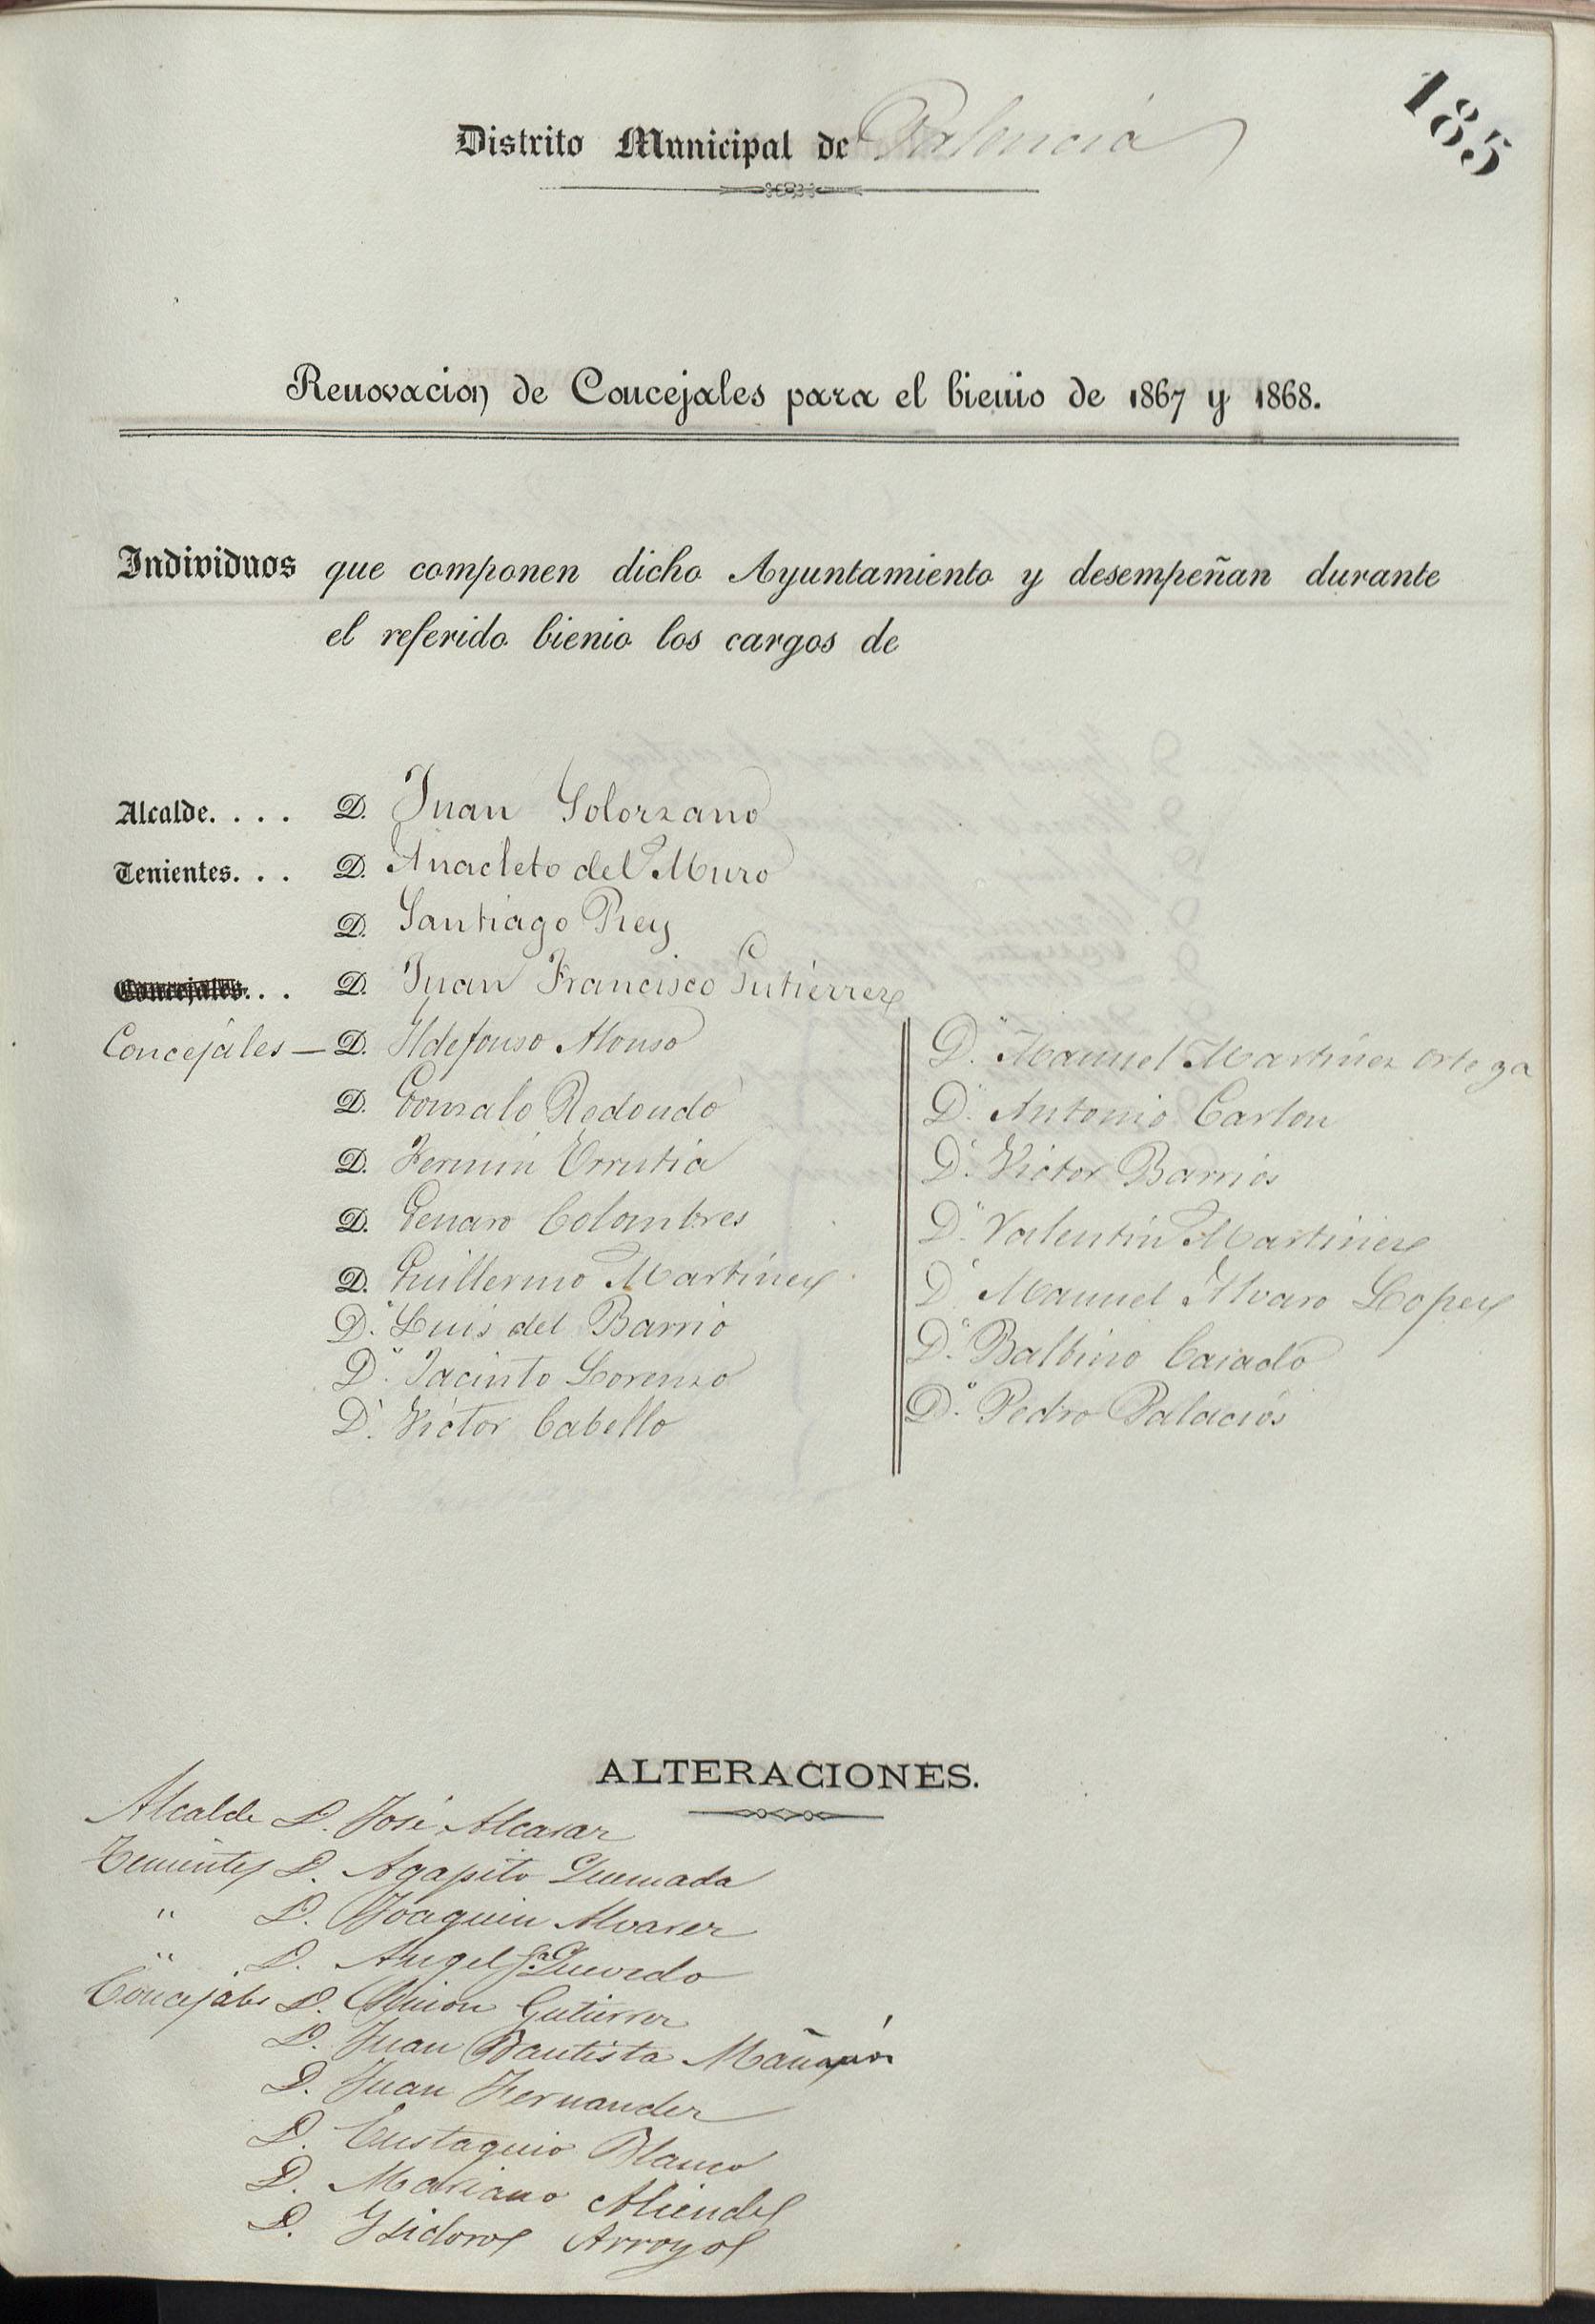 185
Distrito Municipal de Palencia
Renovacion de Concejales para el bienio de 1867 y 1868.
Individuos que componen dicho Ayuntamiento y desempeñan durante
el referido bienio los cargos de
Alcalde. . . . D. Juan Solorzano
Tenientes. . . D. Anacleto del Muro
D. Santiago Rey
Concejales. . . D. Juan Francisco Gutierrez
Concejales — D. Ildefonso Alonso
D. Gonzalo Redondo
D. Fermin Errutia
D. Genaro Colombres
D. Guillermo Martinez
D.n Luis del Barrio
D.n Jacinto Lorenzo
D.n Victor Cabello
D.n Manuel Martinez Ortega
D.n Antonio Carlon
D.n Victor Barrios
D.n Valentin Martinez
D.n Manuel Alvaro Lopez
D.n Balbino Casado
D.n Pedro Palacios
ALTERACIONES.
Alcalde D. José Alcazar
Tenientes D. Agapito Quemada
" D. Joaquin Alvarez
" D. Angel Ga Quevedo
Concejales D. Simon Gutierrez
D. Juan Bautista
D. Juan Fernandez
D. Eustaquio Blanco
D. Mariano Aliende
D. Ysidoro Arroyo